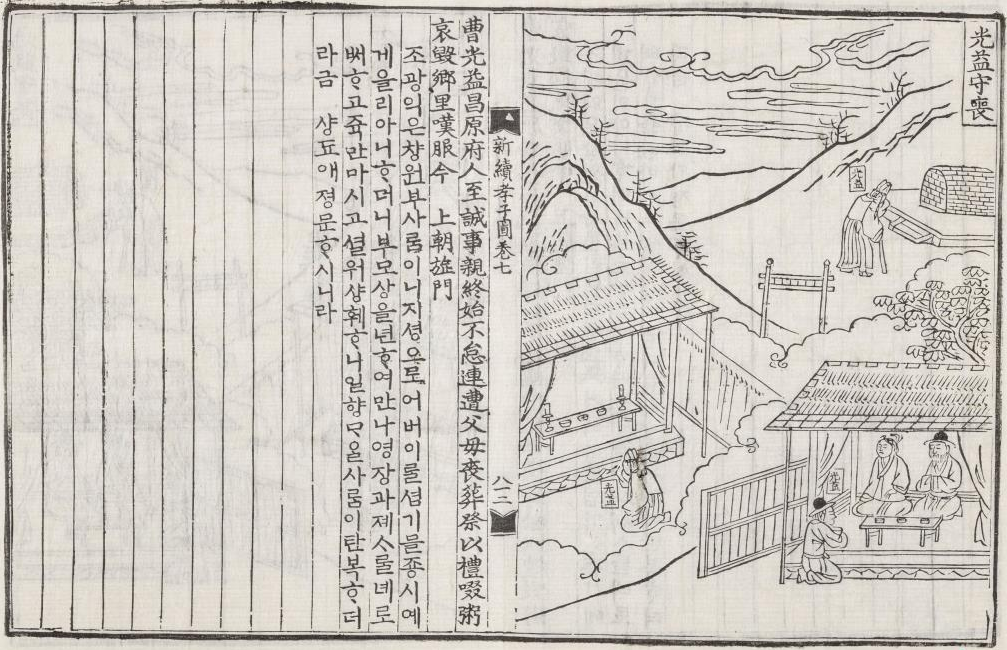 光益守喪
光益
光益
光益
新續孝子圖卷七
八二
曹光益昌原府人至誠事親終始不怠連遭父母喪葬祭以禮啜粥
哀毀鄕里嘆服今 上朝旌門
조광익은창원부사ᄅᆞᆷ이니지셩으로어버이ᄅᆞᆯ셤기믈죵시예
게을리아니ᄒᆞ더니부모상을년ᄒᆞ여만나영장과졔ᄉᆞᄅᆞᆯ녜로
ᄡᅥᄒᆞ고쥭만마시고셜워샹훼ᄒᆞ니일향ᄆᆞᄋᆞᆯ사ᄅᆞᆷ이탄복ᄒᆞ더
라금 샹됴애졍문ᄒᆞ시니라